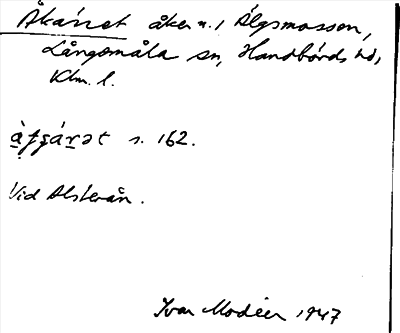 Åkärret åker n. / Älgsmossen,
Långemåla sn, Handbörds hd,
Klm. l.
s. 162.
Vid Alsterån.
Ivar Modéer 1947